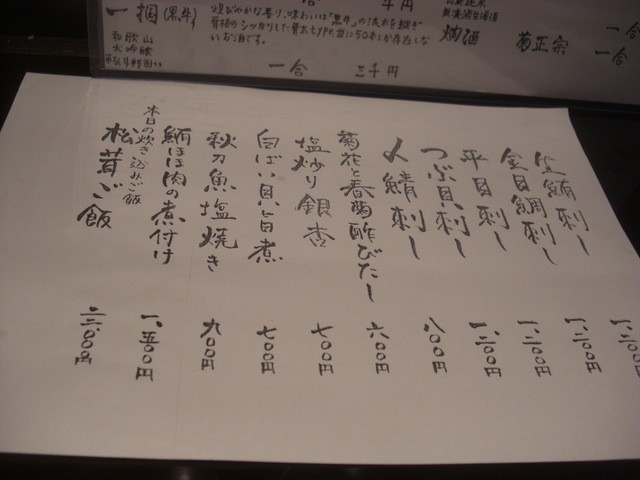 燗酒
菊正宗
一合
一合
一掴(黒牛)
和歌山
大吟醸
味わいは『黒牛』の流れを継ぎ
骨格のシッカリした骨太type。世に50本しか存在しな
いお酒です。
一合 三千円
生鮪刺し 一、二〇〇円
金目鯛刺し 一、二〇〇円
平目刺し 一、二〇〇円
つぶ貝刺し 一、二〇〇円
〆鯖刺し 八〇〇円
菊花と春菊酢びたし 六〇〇円
塩炒り銀杏 七〇〇円
白ばい貝旨煮 七〇〇円
秋刀魚塩焼き 九〇〇円
鮪ほほ肉の煮付け 一、五〇〇円
本日の炊き込みご飯
松茸ご飯